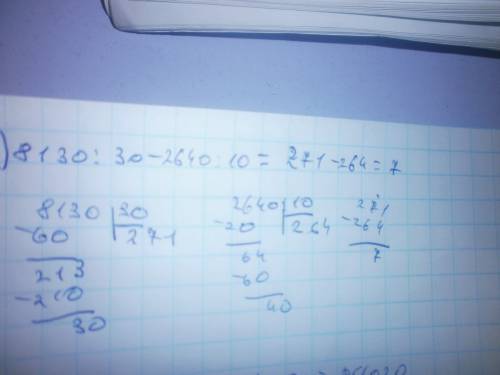 ) 8130 : 30 - 2640 : 10 = 271 - 264 = 7
8130 | 30
- 60 | 271
213
- 210
30
2640 | 10
- 20 | 264
64
- 60
40
271
- 264
7